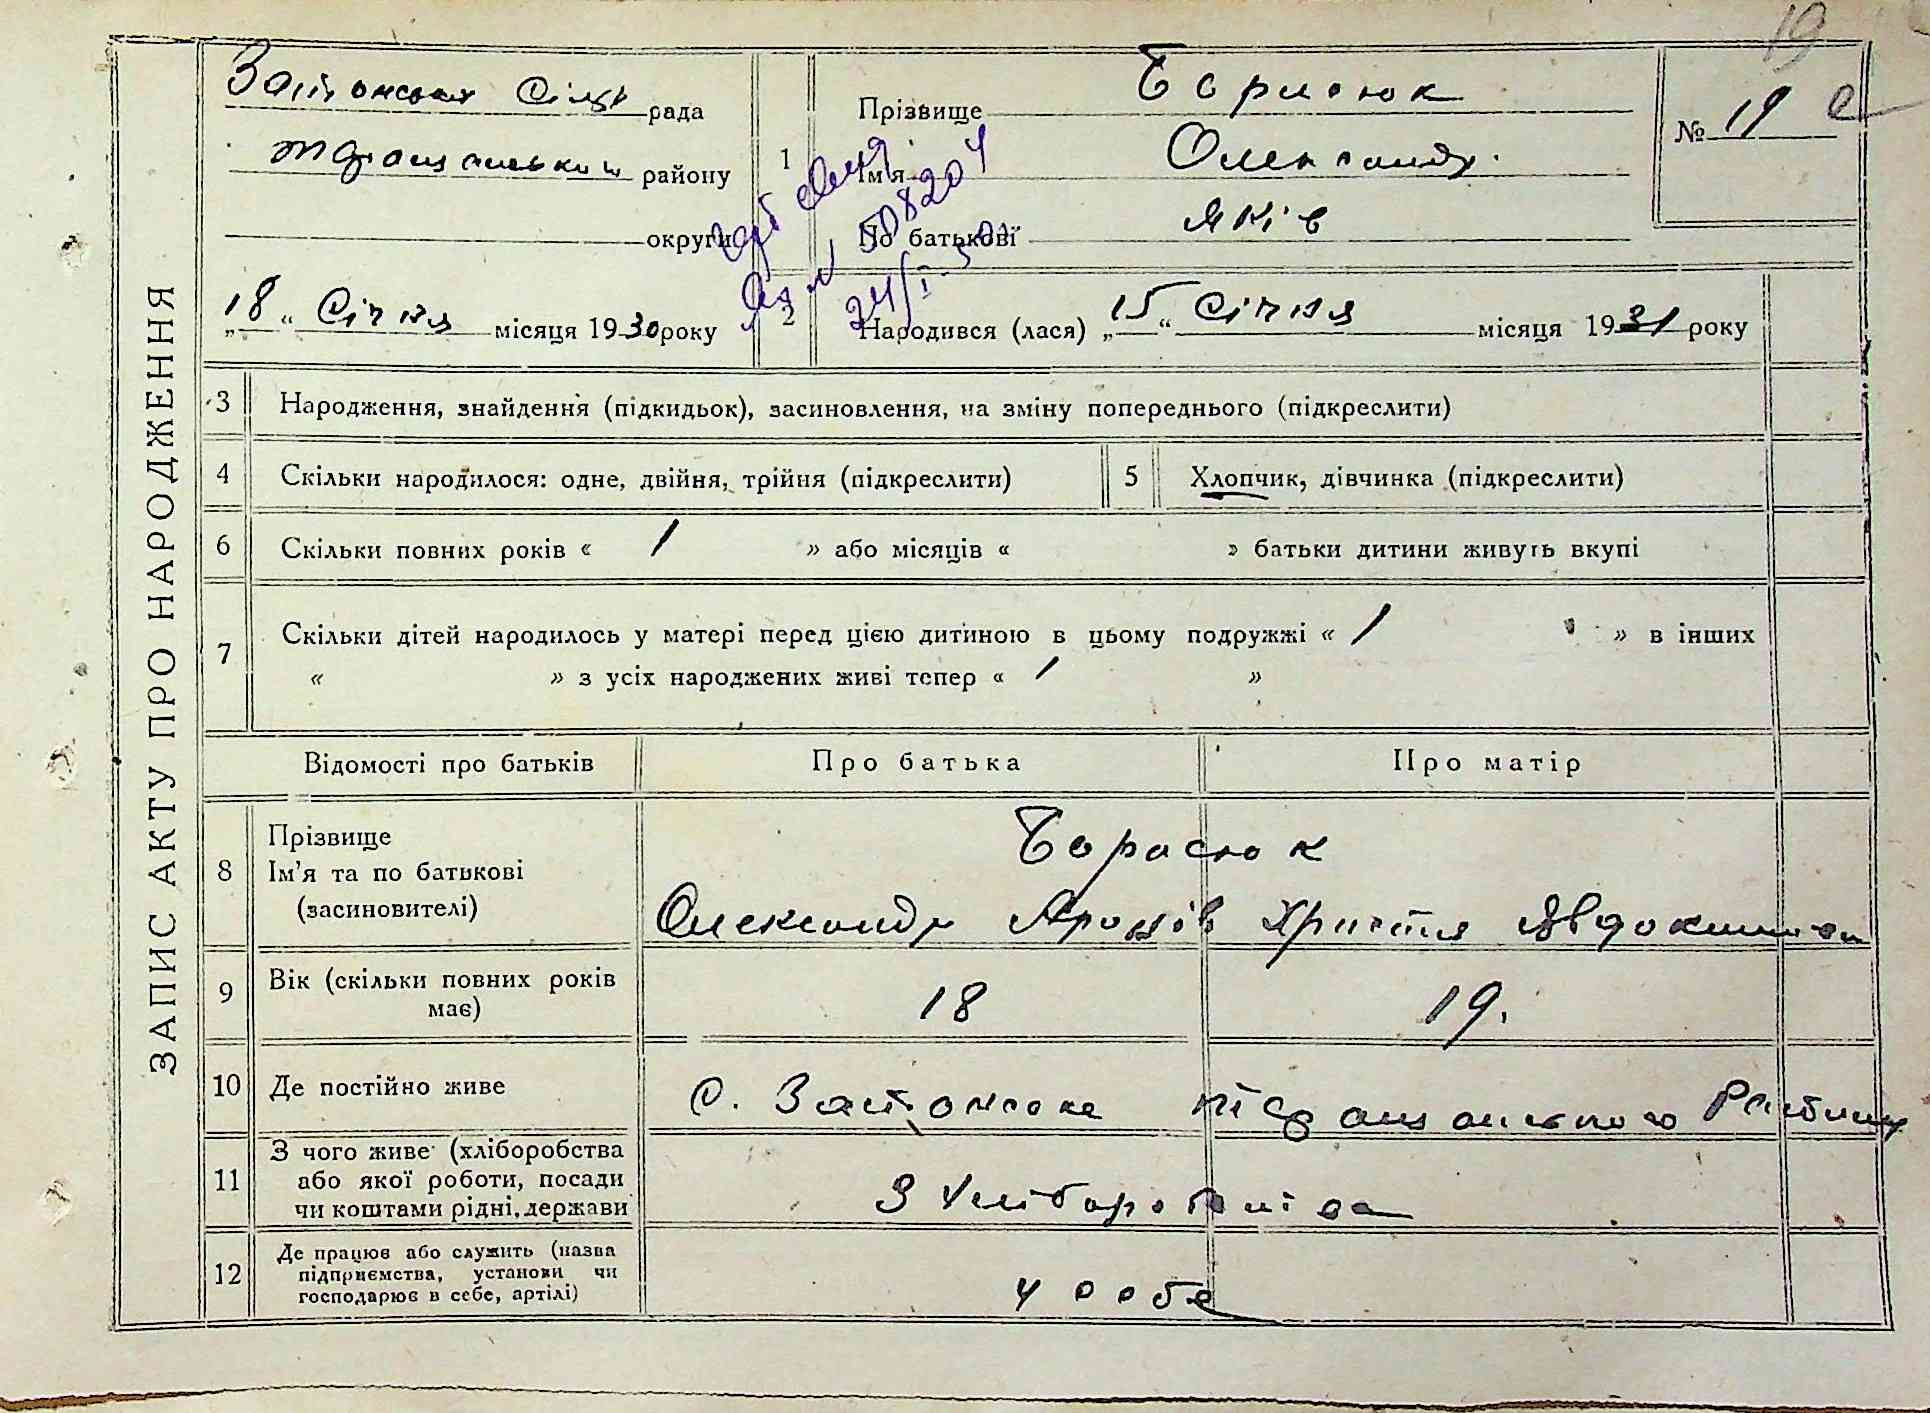 19
ЗАПИС АКТУ ПРО НАРОДЖЕННЯ
Затонська Сільр рада
району
округи
„18“ Січня місяця 1930 року
1
Прізвище Борисюк
Ім'я Олександр.
По батькові Яків
№ 19
№ 508204
24/I-50
2
Народився (лася) „15“ Січня місяця 1931 року
3 Народження, знайдення (підкидьок), засиновлення, на зміну попереднього (підкреслити)
4 Скільки народилося: одне, двійня, трійня (підкреслити)
5 Хлопчик, дівчинка (підкреслити)
6 Скільки повних років « 1 » або місяців « » батьки дитини живуть вкупі
7 Скільки дітей народилось у матері перед цією дитиною в цьому подружжі « 1 » в інших
« » з усіх народжених живі тепер « 1 »
Відомості про батьків Про батька Про матір
8 Прізвище
Ім'я та по батькові
(засиновителі)
Борисюк
Олександр Христя
9 Вік (скільки повних років
має)
18 19.
10 Де постійно живе
с. Затонське
11 З чого живе (хліборобства
або якої роботи, посади
чи коштами рідні, держави
З хліборобства
12 Де працює або служить (назва
підприємства, установи чи
господарює в себе, артілі)
У себе